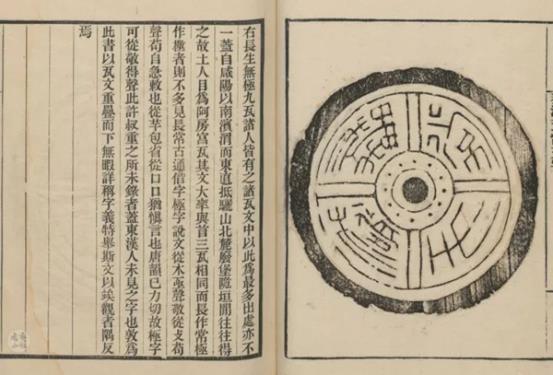 右長生無極九瓦諸人皆有之諸瓦文中以此為最多出處亦不
一蓋自咸陽以南濱渭而東直抵驪山北麓廢堡隤垣間往往得
之故土人目為阿房宮瓦其文大率與首三瓦相同而長作常極
作𢘍者則不多見長常古通信字極字說文從木亟聲敬從攴苟
聲苟自急敕也從羊包省從口口猶慎言也唐韻己力切故極字
可從敬得聲此許叔重之所未錄者蓋東漢人未見之字也敦為
此書以瓦文重疊而下無暇詳稱字義特舉斯文以埃觀者隅反
焉